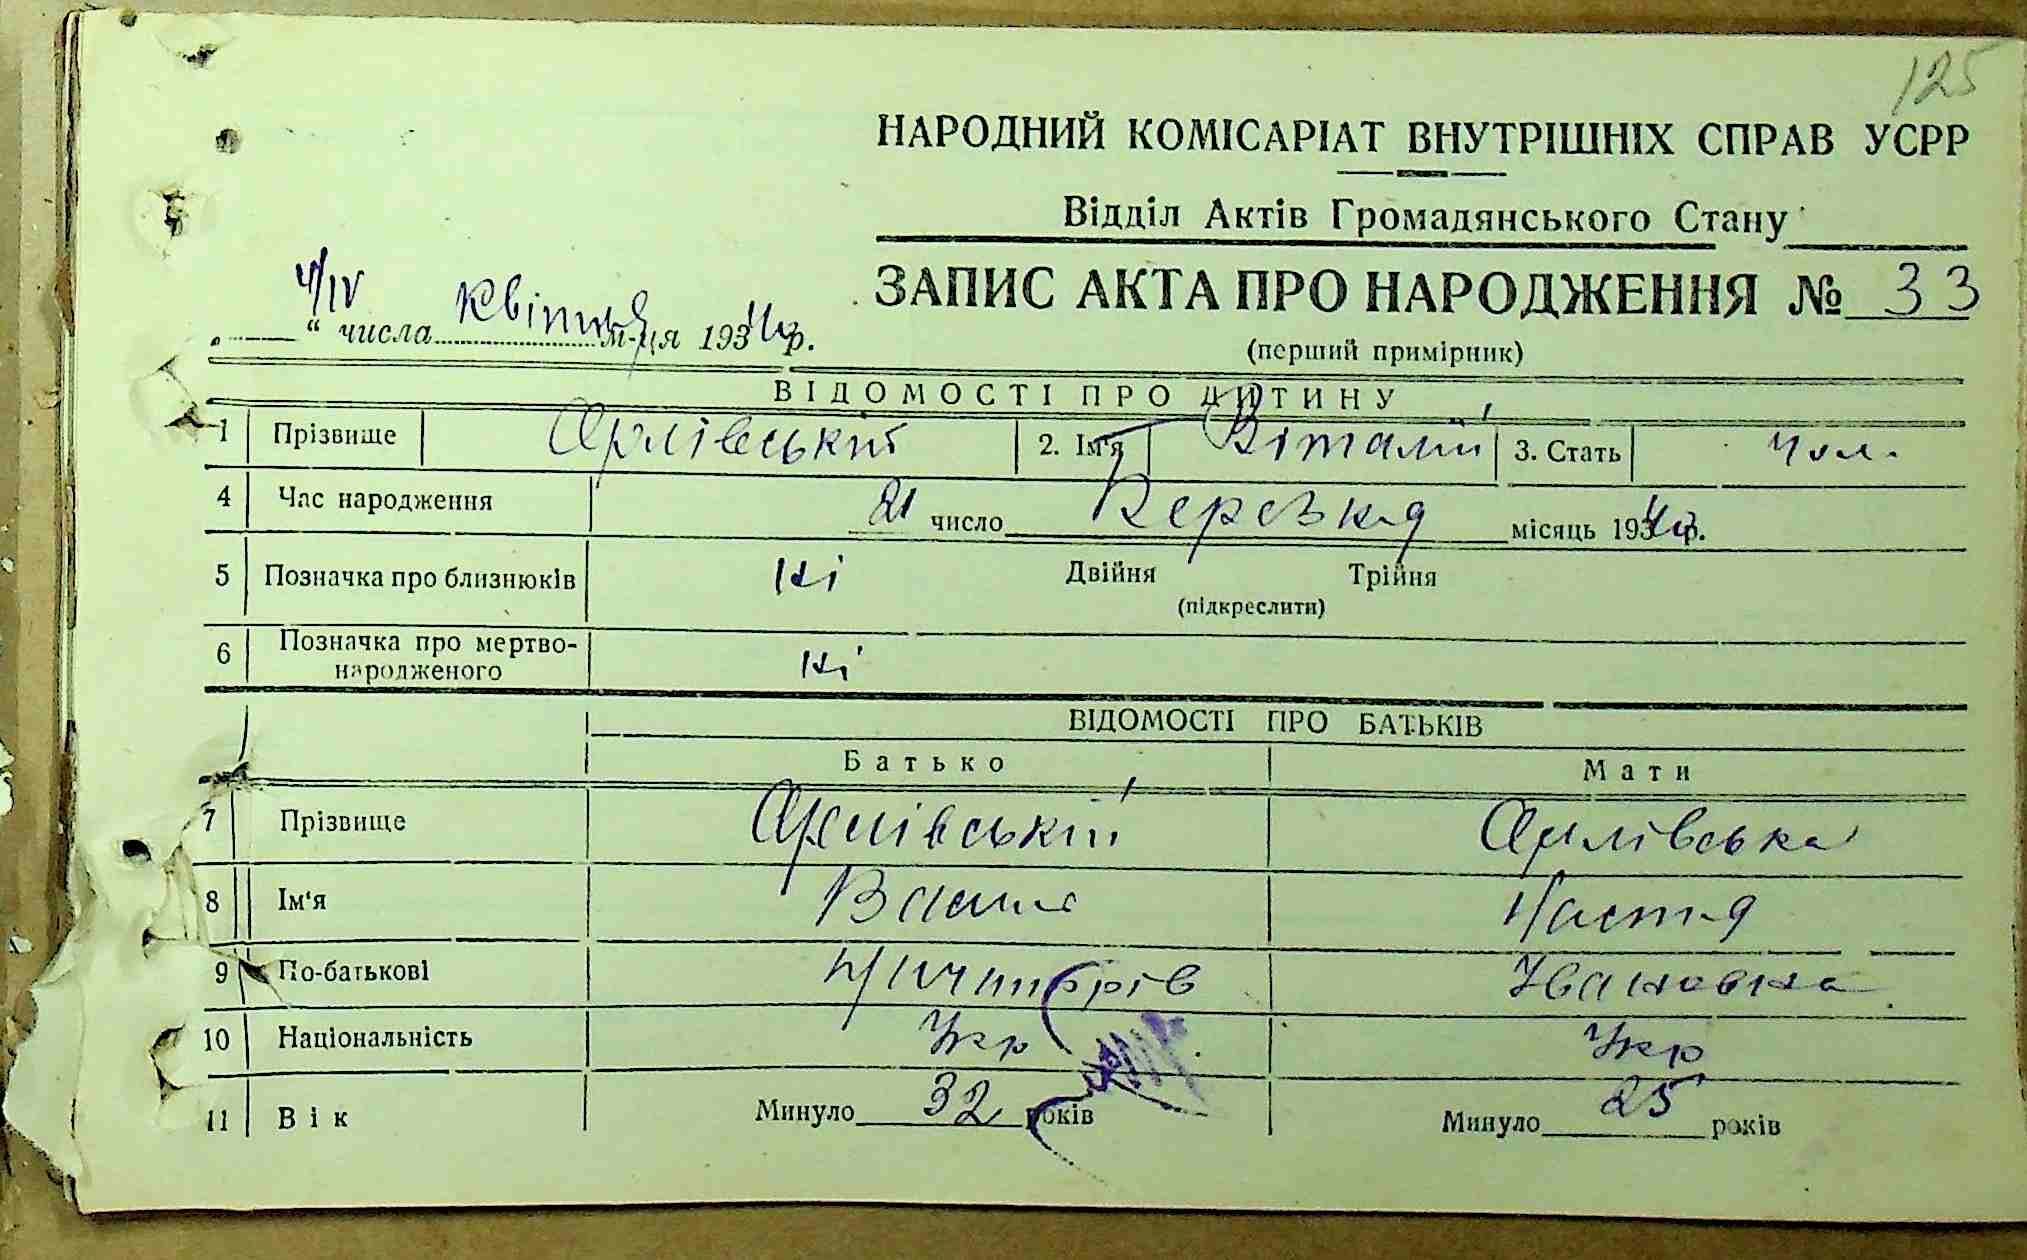 125
НАРОДНИЙ КОМІСАРІАТ ВНУТРІШНІХ СПРАВ УСРР
Відділ Актів Громадянського Стану
4/IV
“ числа квітня м-ця 193 р.
ЗАПИС АКТА ПРО НАРОДЖЕННЯ № 33
(перший примірник)
ВІДОМОСТІ ПРО ДИТИНУ
1 Прізвище Орлівський 2. Ім'я Віталій 3. Стать чол.
4 Час народження 21 число Березня місяць 193 р.
5 Позначка про близнюків Ні Двійня Трійня
(підкреслити)
6 Позначка про мертво-
народженого Ні
ВІДОМОСТІ ПРО БАТЬКІВ
Батько Мати
7 Прізвище Орлівський Орлівська
8 Ім'я Настя
9 По-батькові Івановна
10 Національність Укр Укр
11 Вік Минуло 32 років Минуло 25 років